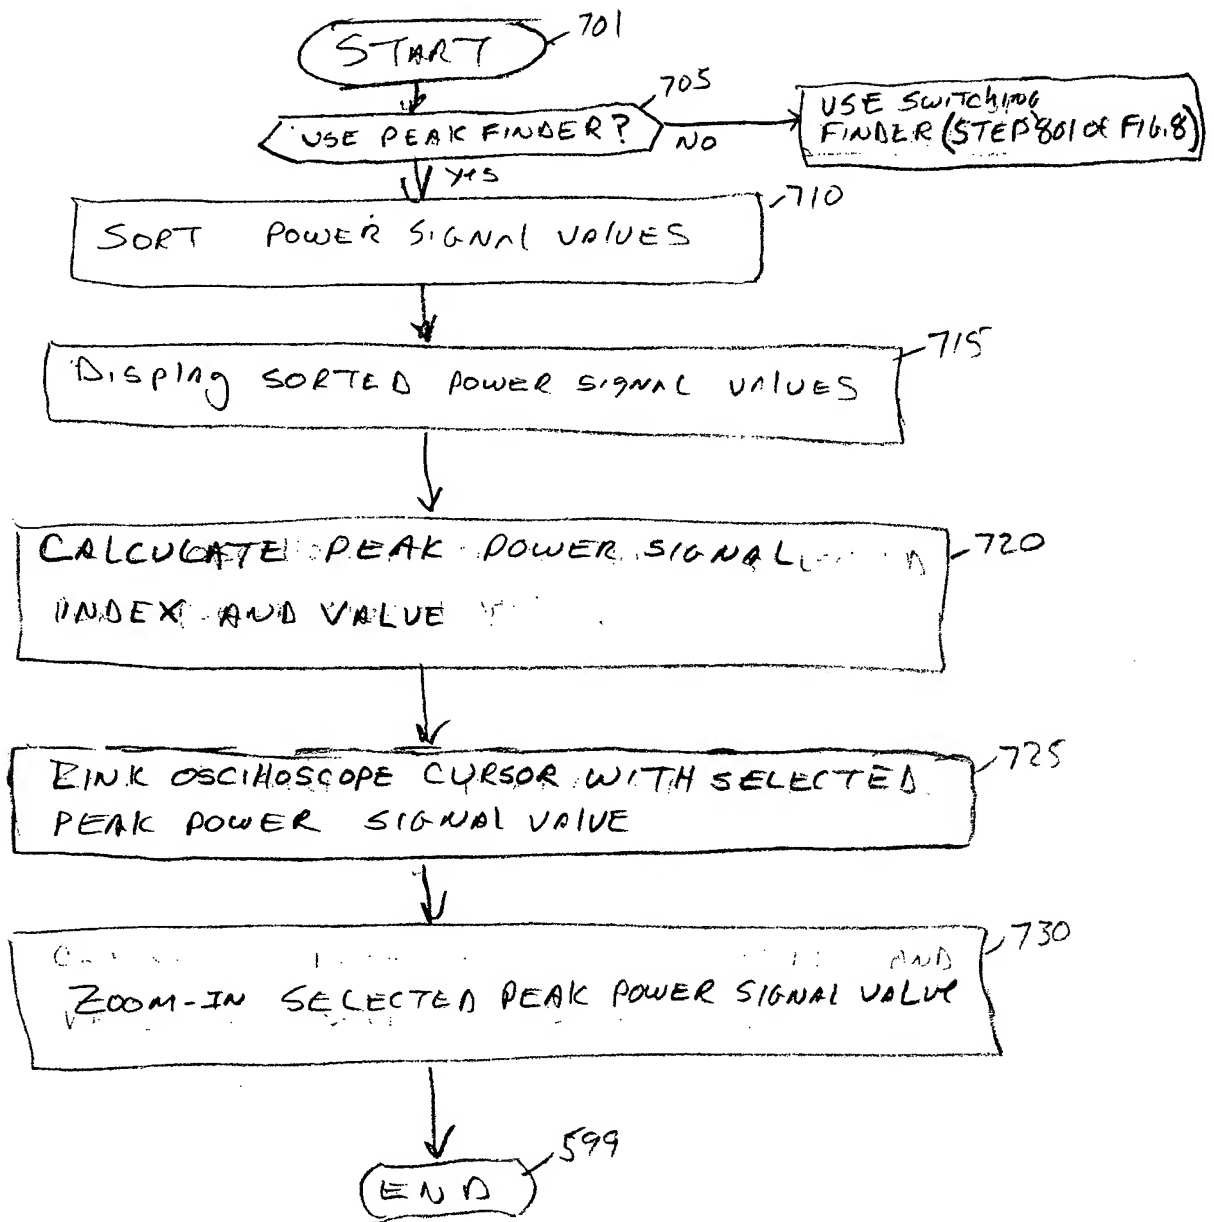 START
701
USE PEAK FINDER?
705
NO
USE SWITCHING
FINDER (STEP 801 OF FIG.8)
Yes
710
SORT POWER SIGNAL VALUES
715
Display SORTED POWER SIGNAL VALUES
720
CALCULATE PEAK POWER SIGNAL
INDEX AND VALUE
725
LINK OSCILLOSCOPE CURSOR WITH SELECTED
PEAK POWER SIGNAL VALUE
730
AND
ZOOM-IN SELECTED PEAK POWER SIGNAL VALUE
599
END